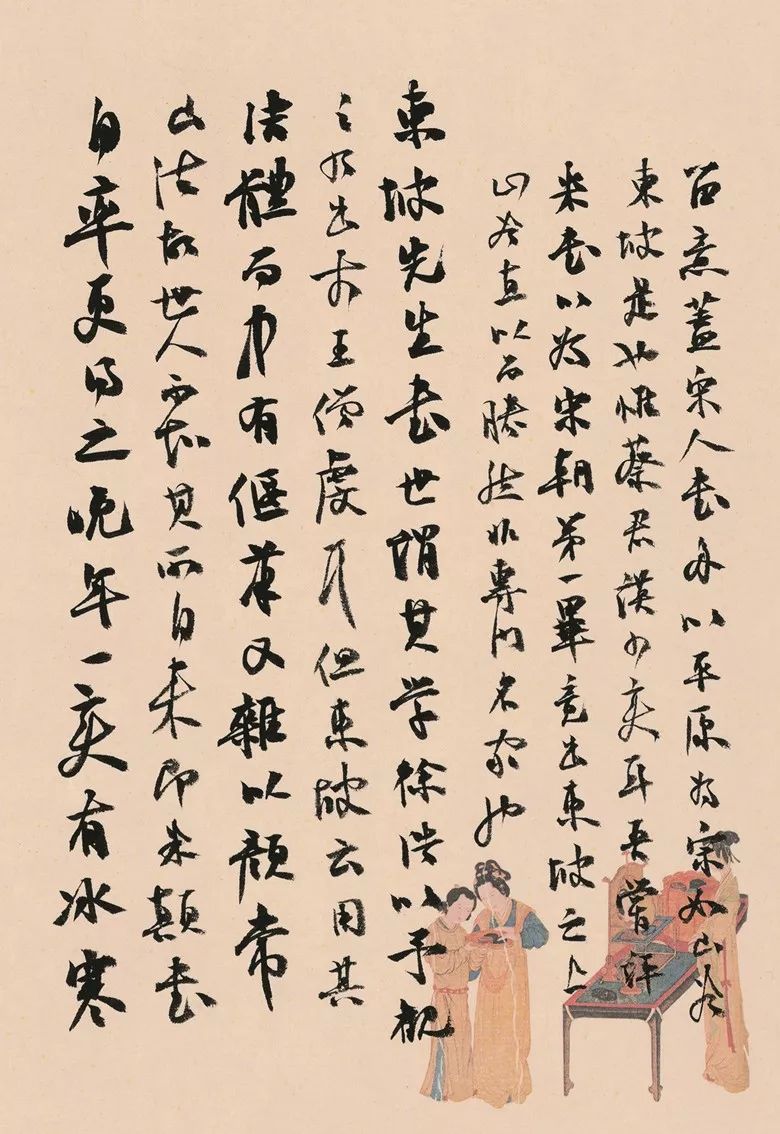 留意蓋宋人書多以平原為宗如山谷
東坡是也惟蔡君謨少變耳吾嘗評
米書以為宋朝第一畢竟出東坡之上
山谷直以品勝然非專門名家也
東坡先生書世謂其學徐浩以予觀
之乃出於王僧虔耳但東坡云用其
結體而中有偃筆又雜以顏常
山法故世人不知其所自來即米顛書
自率更得之晚年一變有冰寒